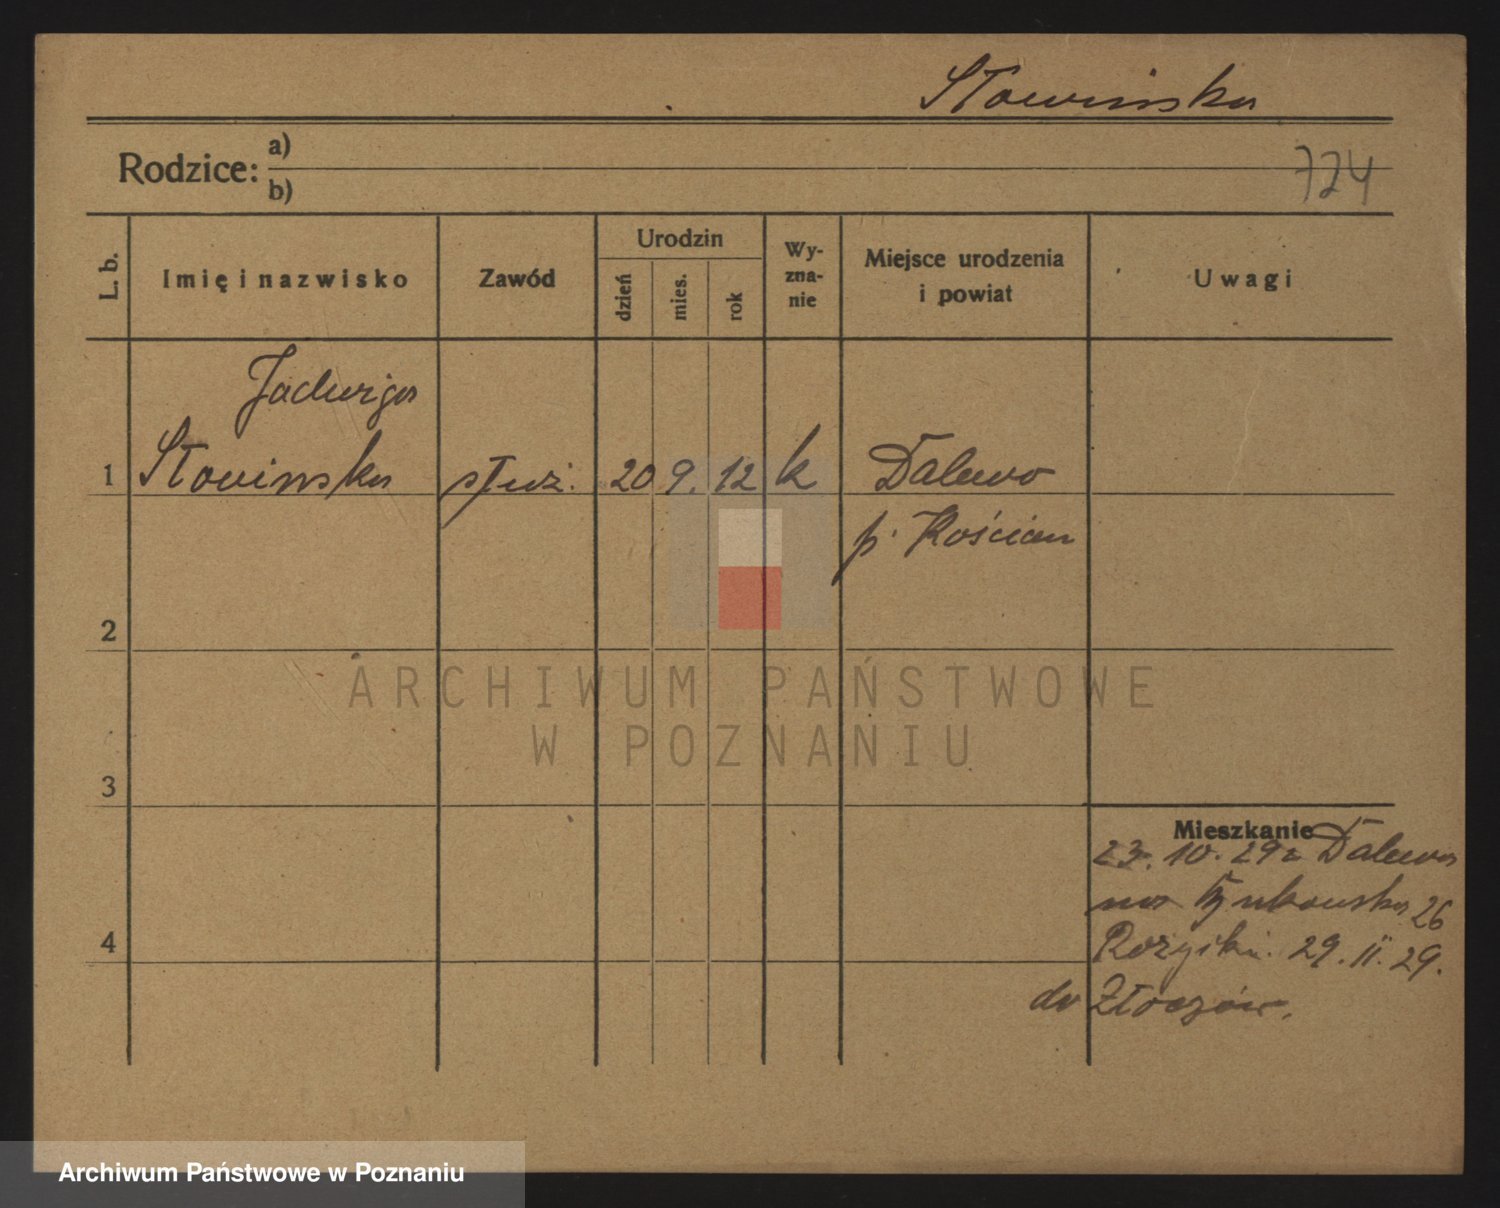 Słowinska
Rodzice: a)
b)
724
L. b.
Imię i nazwisko
Zawód
Urodzin
dzień
mies.
rok
Wy-
zna-
nie
Miejsce urodzenia
i powiat
Uwagi
Jadwiga
1 Słowinska służ. 20 9. 12 k Dalewo
p. Kościan
2
3
4
Mieszkanie
23. 10. 29 z Dalewa
na 26
29. 11. 29.
do Złoczów.
ARCHIWUM PAŃSTWOWE
W POZNANIU
Archiwum Państwowe w Poznaniu